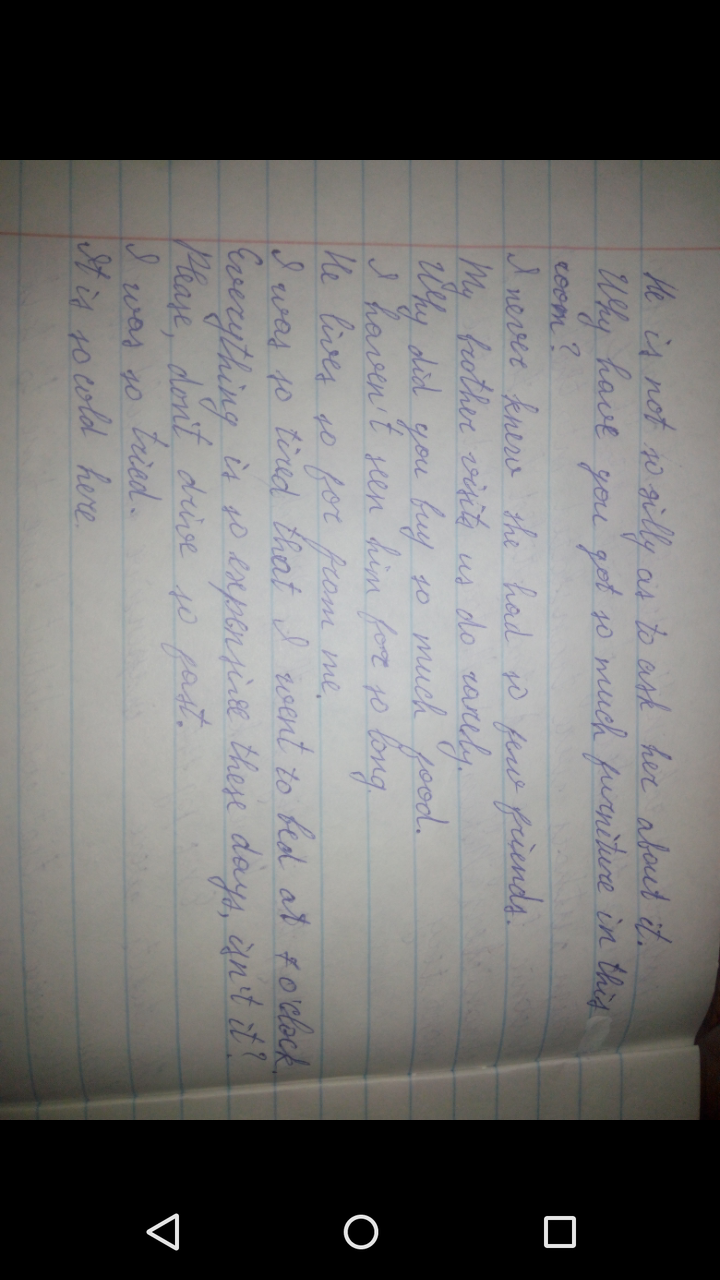 He is not so silly as to ask her about it.
Why have you got so much furniture in this
room?
I never knew she had so few friends.
My brother visits us do rarely.
Why did you buy so much food.
I haven't seen him for so long
He lives so far from me.
I was so tired that I went to bed at 7 o'clock.
Everything is so expensive these days, isn't it?
Please, don't drive so fast.
I was so tried.
It is so cold here.